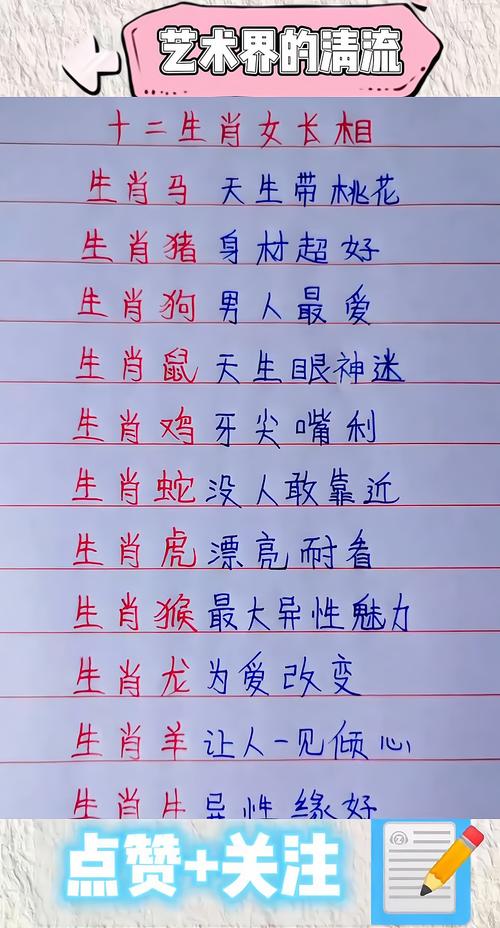 艺术界的清流
十二生肖女长相
生肖马 天生带桃花
生肖猪 身材超好
生肖狗 男人最爱
生肖鼠 天生眼神迷
生肖鸡 牙尖嘴利
生肖蛇 没人敢靠近
生肖虎 漂亮耐看
生肖猴 最大异性魅力
生肖龙 为爱改变
生肖羊 让人一见倾心
生肖牛 异性缘好
点赞+关注